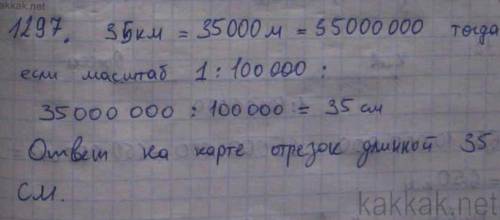 kakkak.net
1297. 35км = 35000м = 35000000 тогда
если масштаб 1 : 100 000 :
35 000 000 : 100 000 = 35 см
Ответ на карте отрезок длинной 35
см.
kakkak.net